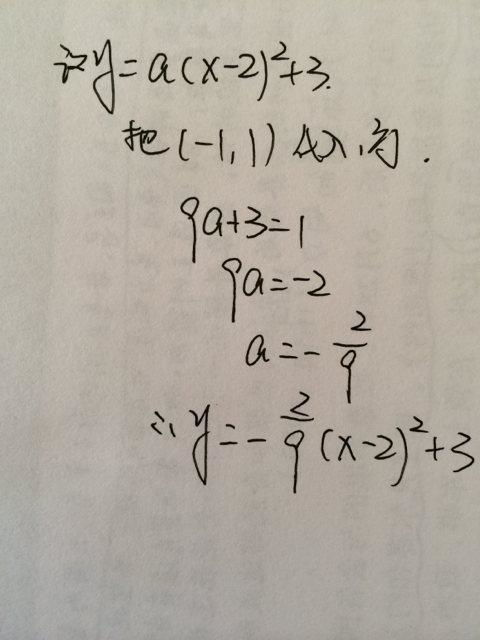 设y=a(x-2)²+3.
把(-1,1)代入,得.
9a+3=1
9a=-2
a=-2/9
∴y=-2/9(x-2)²+3